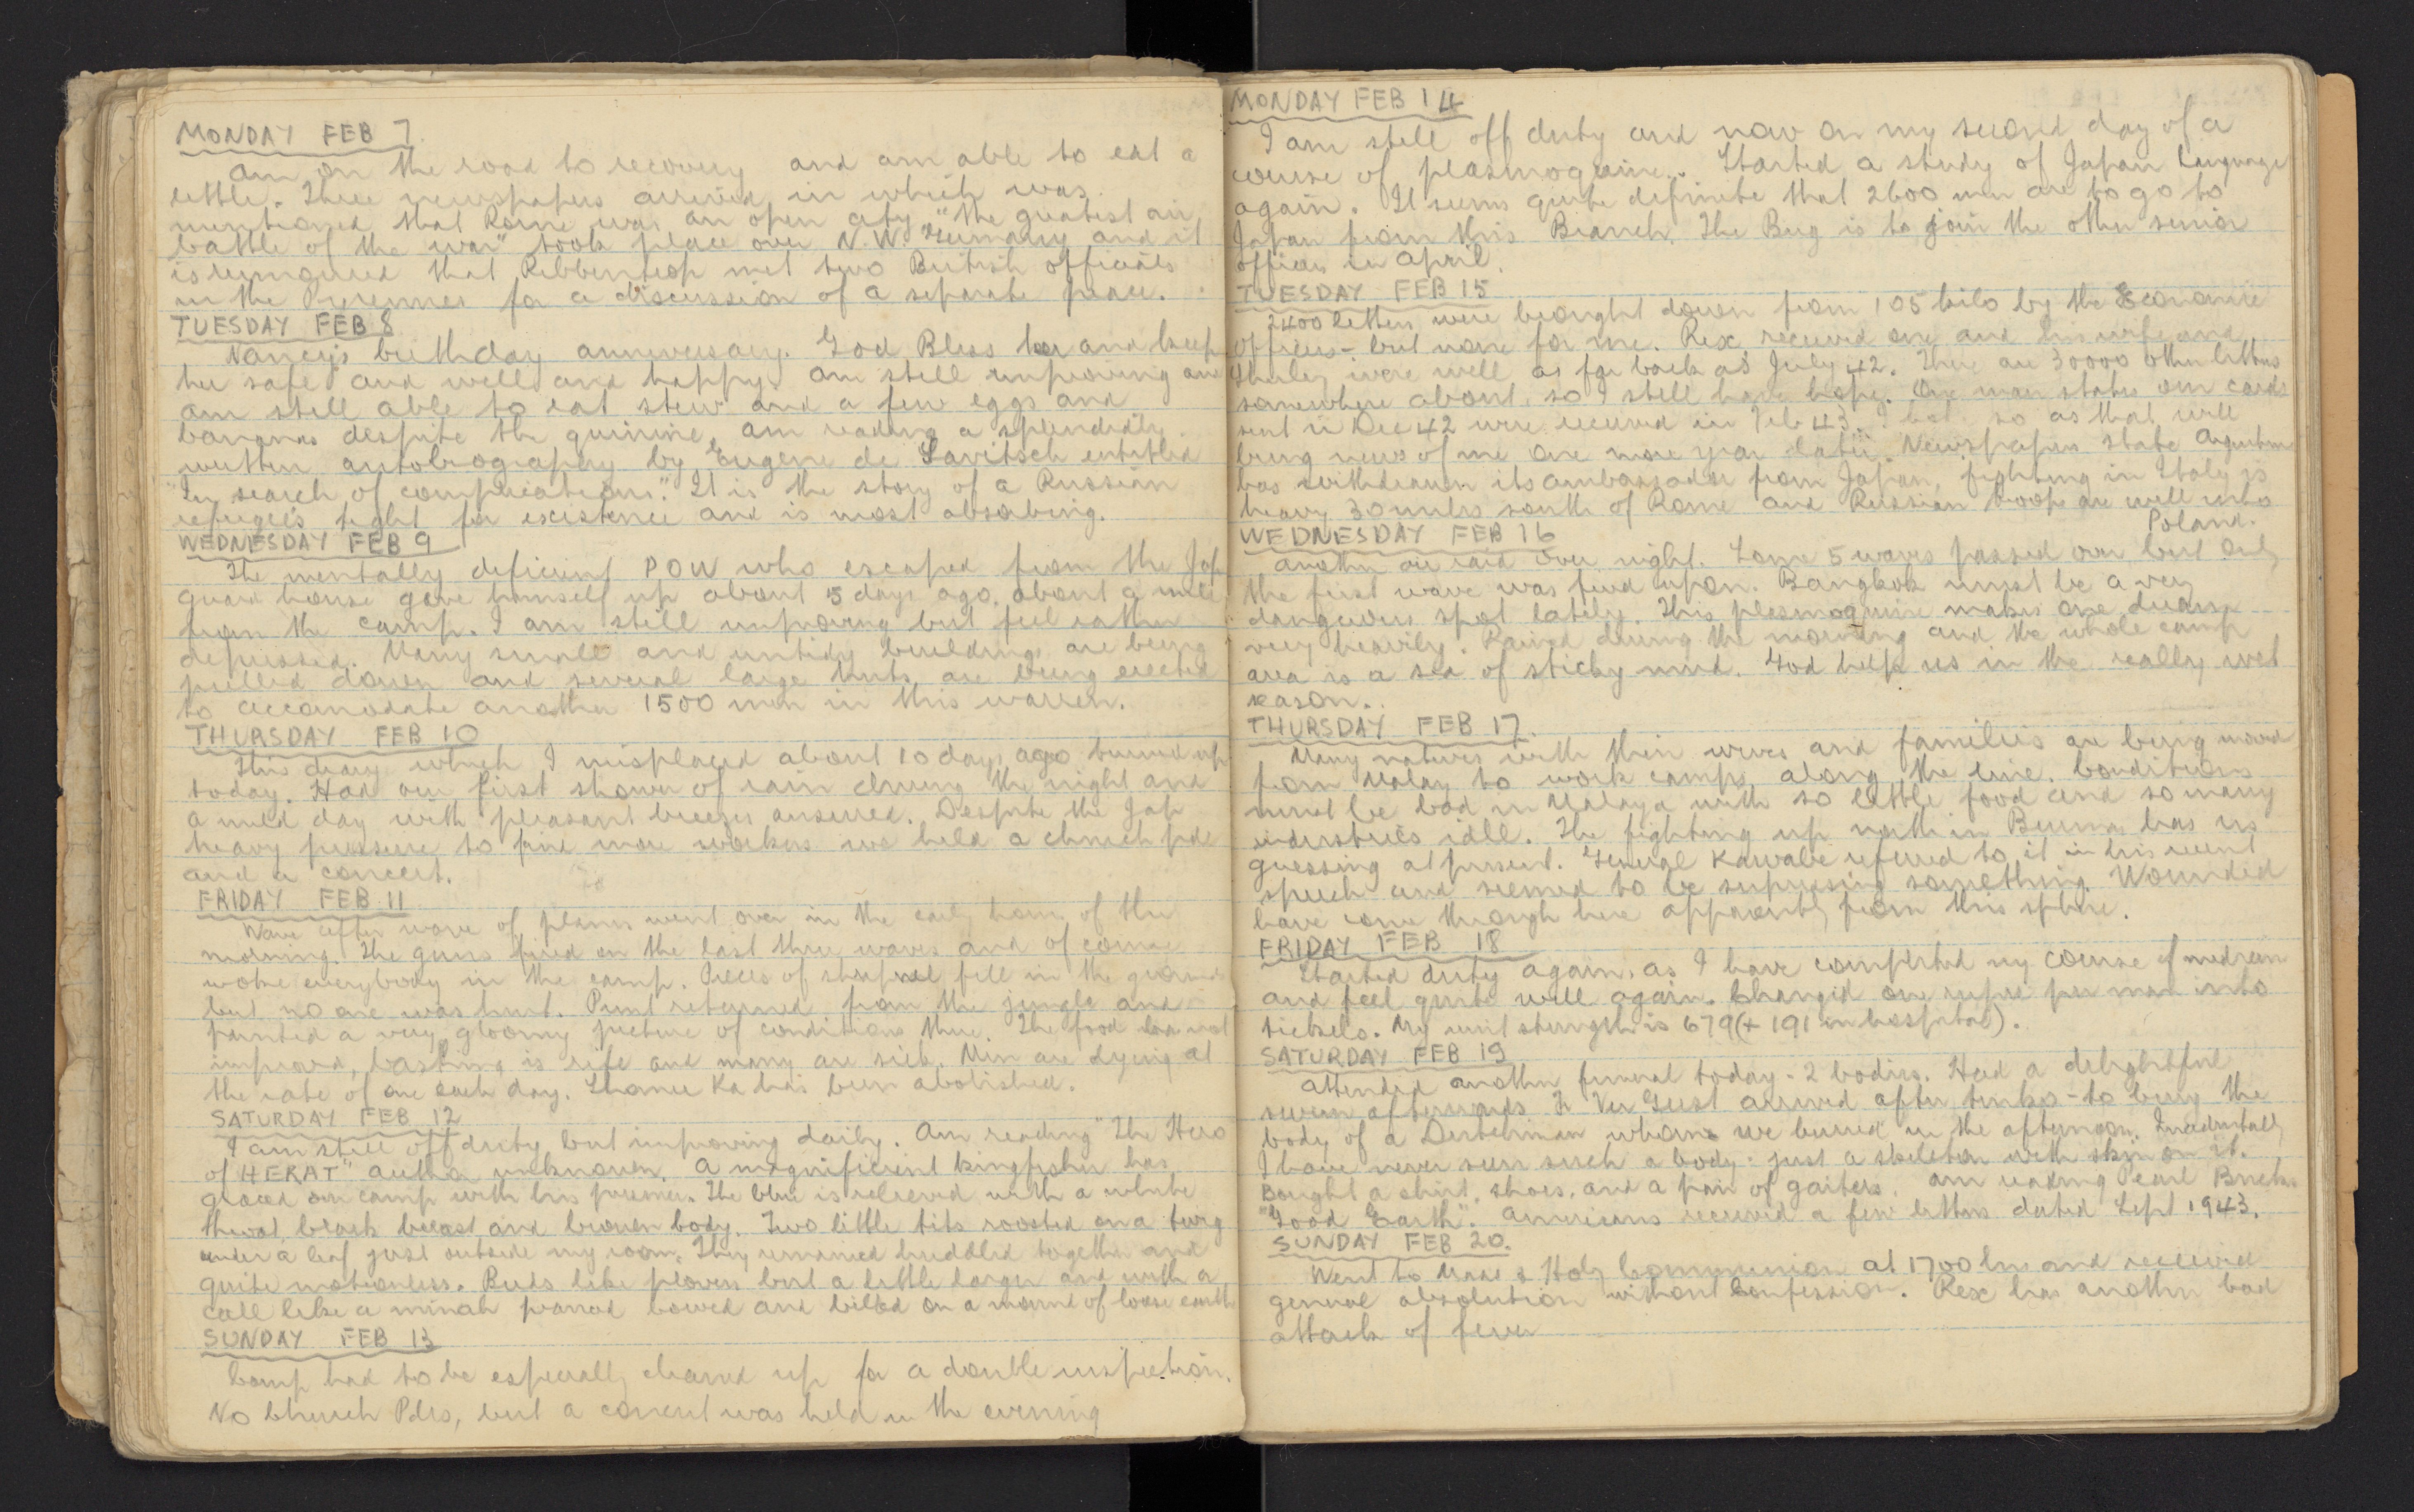 MONDAY FEB 7
Am on the road to recovery and am able to eat a
little. Three newspapers arrived in which was
mentioned that Rome was an open city, "the greatest air
battle of the war" took place over N.W. Germany and it
is rumoured that Ribbentrop met two British officials
in the Pyrennes for a discussion of a separate peace.
TUESDAY FEB 8
Nancy's birthday anniversary. God Bless her and keep
her safe and well and happy. Am still improving and
am still able to eat stew and a few eggs and
bananas despite the quinine. Am reading a splendidly
written autobiography by Eugene de Savitsch entitled
"In search of complications". It is the story of a Russian
refugee's fight for existence and is most absorbing.
WEDNESDAY FEB 9
The mentally deficient POW who escaped from the Jap
guard house gave himself up about 5 days ago, about a mile
from the camp. I am still improving but feel rather
depressed. Many small and untidy buildings are being
pulled down and several large huts are being erected
to accomodate another 1500 men in this warren.
THURSDAY FEB 10
This diary which I misplaced about 10 days ago turned up
today. Had our first shower of rain during the night and
a mild day with pleasant breezes ensured. Despite the Jap
heavy pressure to find more workers we held a church pde
and a concert.
FRIDAY FEB 11
Wave after wave of planes went over in the early hours of the
morning. The guns fired on the last three waves and of course
woke everybody in the camp. Pieces of shrapnel fell in the grounds
but no one was hurt. Punt returned from the jungle and
painted a very gloomy picture of conditions there. The food has not
improved, bashing is rife and many are sick. Men are dying at
the rate of one each day. Ka has been abolished.
SATURDAY FEB 12
I am still off duty but improving daily. Am reading "The Hero
of HERAT" author unknown. A magnificient kingfisher has
graced our camp with his presence. The blue is relieved with a white
throat, black breast and brown body. Two little tits roosted on a twig
under a leaf just outside my room. They remained huddled together and
quite motionless. Birds like plovers but a little larger and with a
call like a minah bowed and on a mound of loose earth
SUNDAY FEB 13
Camp had to be especially cleaned up for a double inspection.
No Church Pdes, but a concert was held in the evening
MONDAY FEB 14
I am still off duty and now on my second day of a
course of plasmoquine. Started a study of Japan language
again. It seems quite definite that 2600 men are to go to
Japan from this Branch. The Brig is to join the other senior
officers in April.
TUESDAY FEB 15
2400 letters were brought down from 105 kilo by the Economic
Officers - but none for me. Rex received one and his wife and
Shirley were well as far back as July 42. There are 30000 other letters
somewhere about, so I still have hope. One man states our cards
sent in Dec 42 were received in Feb 43. I so as that will
bring news of me one more year later. Newspapers state Argentine
has withdrawn its ambassador from Japan, fighting in Italy is
heavy 30 miles south of Rome and Russian troops are well into
Poland.
WEDNESDAY FEB 16
Another air raid over night. Some 5 waves passed over but only
the first wave was fired upon. Bangkok must be a very
dangerous spot lately. This plesmoquine makes one dream
very heavily. Rained during the morning and the whole camp
area is a sea of sticky mud. God help us in the really wet
season.
THURSDAY FEB 17.
Many natives with their wives and families are being moved
from Malay to work camps along the line. Conditions
must be bad in Malaya with so little food and so many
industries idle. The fighting up north in Burma has us
guessing at present. General Kawabe refered to it in his recent
speech and seemed to be supressing something. Wounded
have come through here apparently from this sphere.
FRIDAY FEB 18
Started duty again, as I have completed my course of medicine
and feel quite well again. Changed one rupee per man into
tickels. My unit strength is 679 (+ 191 in hospital).
SATURDAY FEB 19
Attended another funeral today - 2 bodies. Had a delightful
swim afterwards. Fr Ver Gust arrived after tenko - to bury the
body of a Dutchman whom we buried in the afternoon. Incidentally
I have never seen such a body - just a skeleton with skin on it.
Bought a shirt, shoes, and a pair of gaiters. Am reading Pearl Bucks
"Good Earth". Americans received a few letters dated Sept 1943.
SUNDAY FEB 20.
Went to Mass & Holy Communion at 1700 hrs and received
general absolution without Confession. Rex has another bad
attack of fever